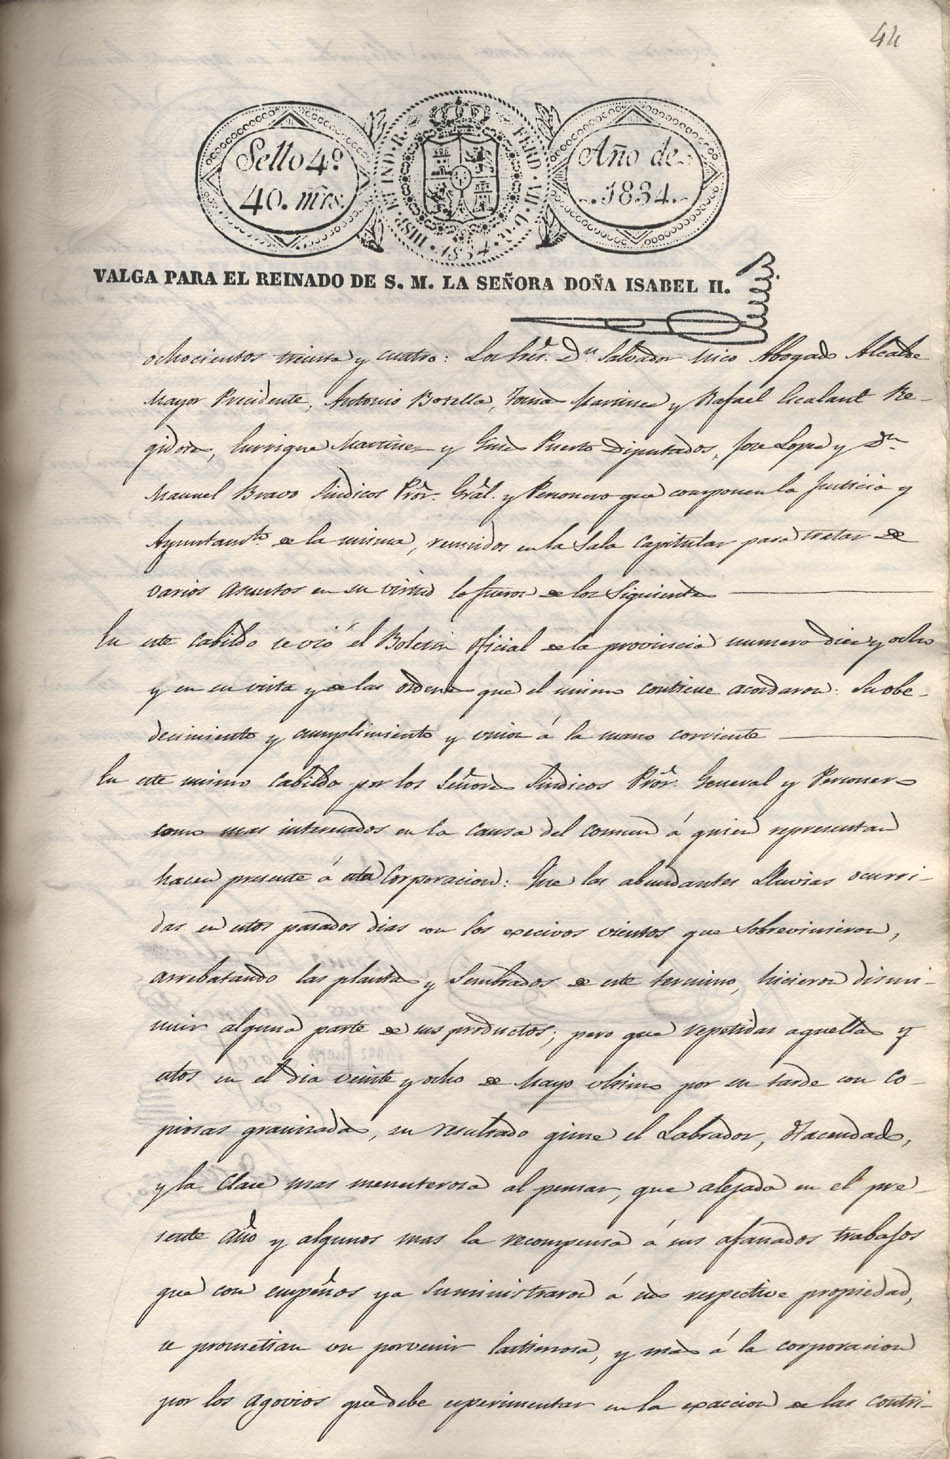 44
Sello 4º
40. mrs.
HISP. ET IND. R. FERD. VII. D. G. 1834
Año de
1834.
VALGA PARA EL REINADO DE S. M. LA SEÑORA DOÑA ISABEL II.
ochocientos treinta y cuatro: Los Sres. Dn Salvador Abogado Alcalde
Mayor Precidente, Antonio Borella, Tomas Martinez y Rafael Escalant Re-
gidores, Enrrique Martinez y Gines Puerto Diputados, Jose Lopez y Dn
Manuel Bravo Sindicos Pror. Gral. y Personero que componen la Justicia y
Ayuntamto. de la misma, reunidos en la Sala Capitular para tratar de
varios asuntos en su virtud lo fueron de los Siguientes
En este Cabildo se vió el Boletin Oficial de la provincia numero diez y ocho
y en su vista y de las ordenes que el mismo contiene acordaron: Su obe-
decimiento y cumplimiento y union á la mano corriente
En este mismo Cabildo por los Señores Sindicos Pror. General y Personero
como mas interesados en la causa del comun á quien representan
hacen presente á esta Corporacion: Que las abundantes Lluvias ocurri-
das en estos pasados dias con los execivos vientos que Sobrevinieron,
arrebatando las plantas y Sembrados de este termino, hicieron dismi-
nuir alguna parte de sus productos; pero que repetidas aquellas y
estos en el dia veinte y ocho de Mayo ultimo por su tarde con Co-
piosas granizadas, su resultado gime el Labrador, Hacendado,
y la Clase mas menesterosa al pensar, que alejada en el pre-
sente año y algunos mas la recompensa á sus afanados trabajos
que con empeños ya Suministraron á sus respective propiedad,
se prometian un porvenir lastimoso, y mas á la corporacion
por los agovios que debe experimentar en la exaccion de las Contri-